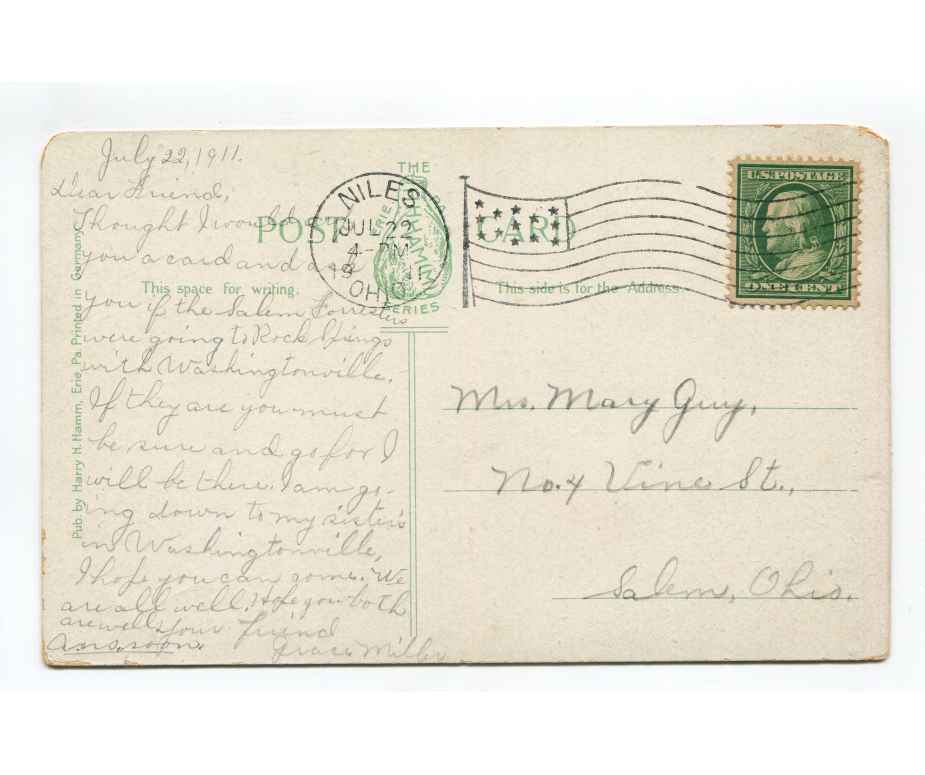 July 22, 1911.
Dear Friend,
Thought I would
you a card and ask
you if the Salem Forresters
were going to Rock Springs
with Washingtonville.
If they are you must
be sure and go for I
will be there. I am go-
ing down to my sister's
in Washingtonville,
I hope you can come. We
are all well. Hope you both
are well. Your friend
Ans. soon. Grace
POST CARD
THE
HAMM
ERIE
SERIES
This space for writing.
This side is for the Address.
Pub. by Harry H. Hamm, Erie, Pa. Printed in Germany
NILES
JUL 22
4-PM
1911
OHIO
U.S. POSTAGE
ONE CENT
Mrs. Mary Guy,
No. 4 Vine St.,
Salem, Ohio.